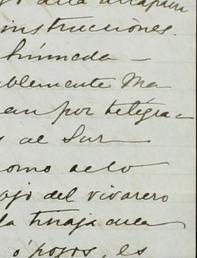 instrucciones.
húmeda —
blemente Ma
an por telégra-
s al Sur
como acto
ajo del vivarero
la tinaja
ó pozos, es